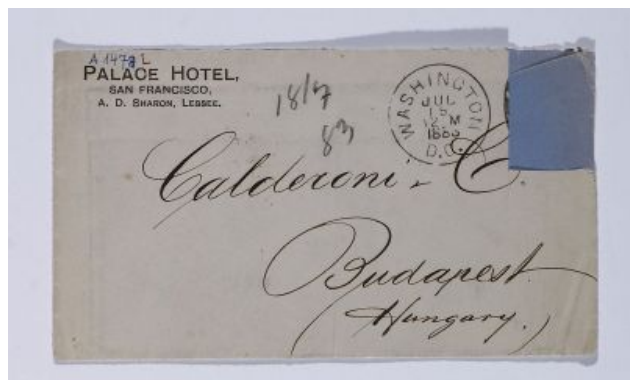 A 1478 L
PALACE HOTEL,
SAN FRANCISCO,
A. D. SHARON, LESSEE.
18/7
83
WASHINGTON
JUL
15
12 M
1883
D.C.
Calderoni - C.
Budapest
(Hungary.)